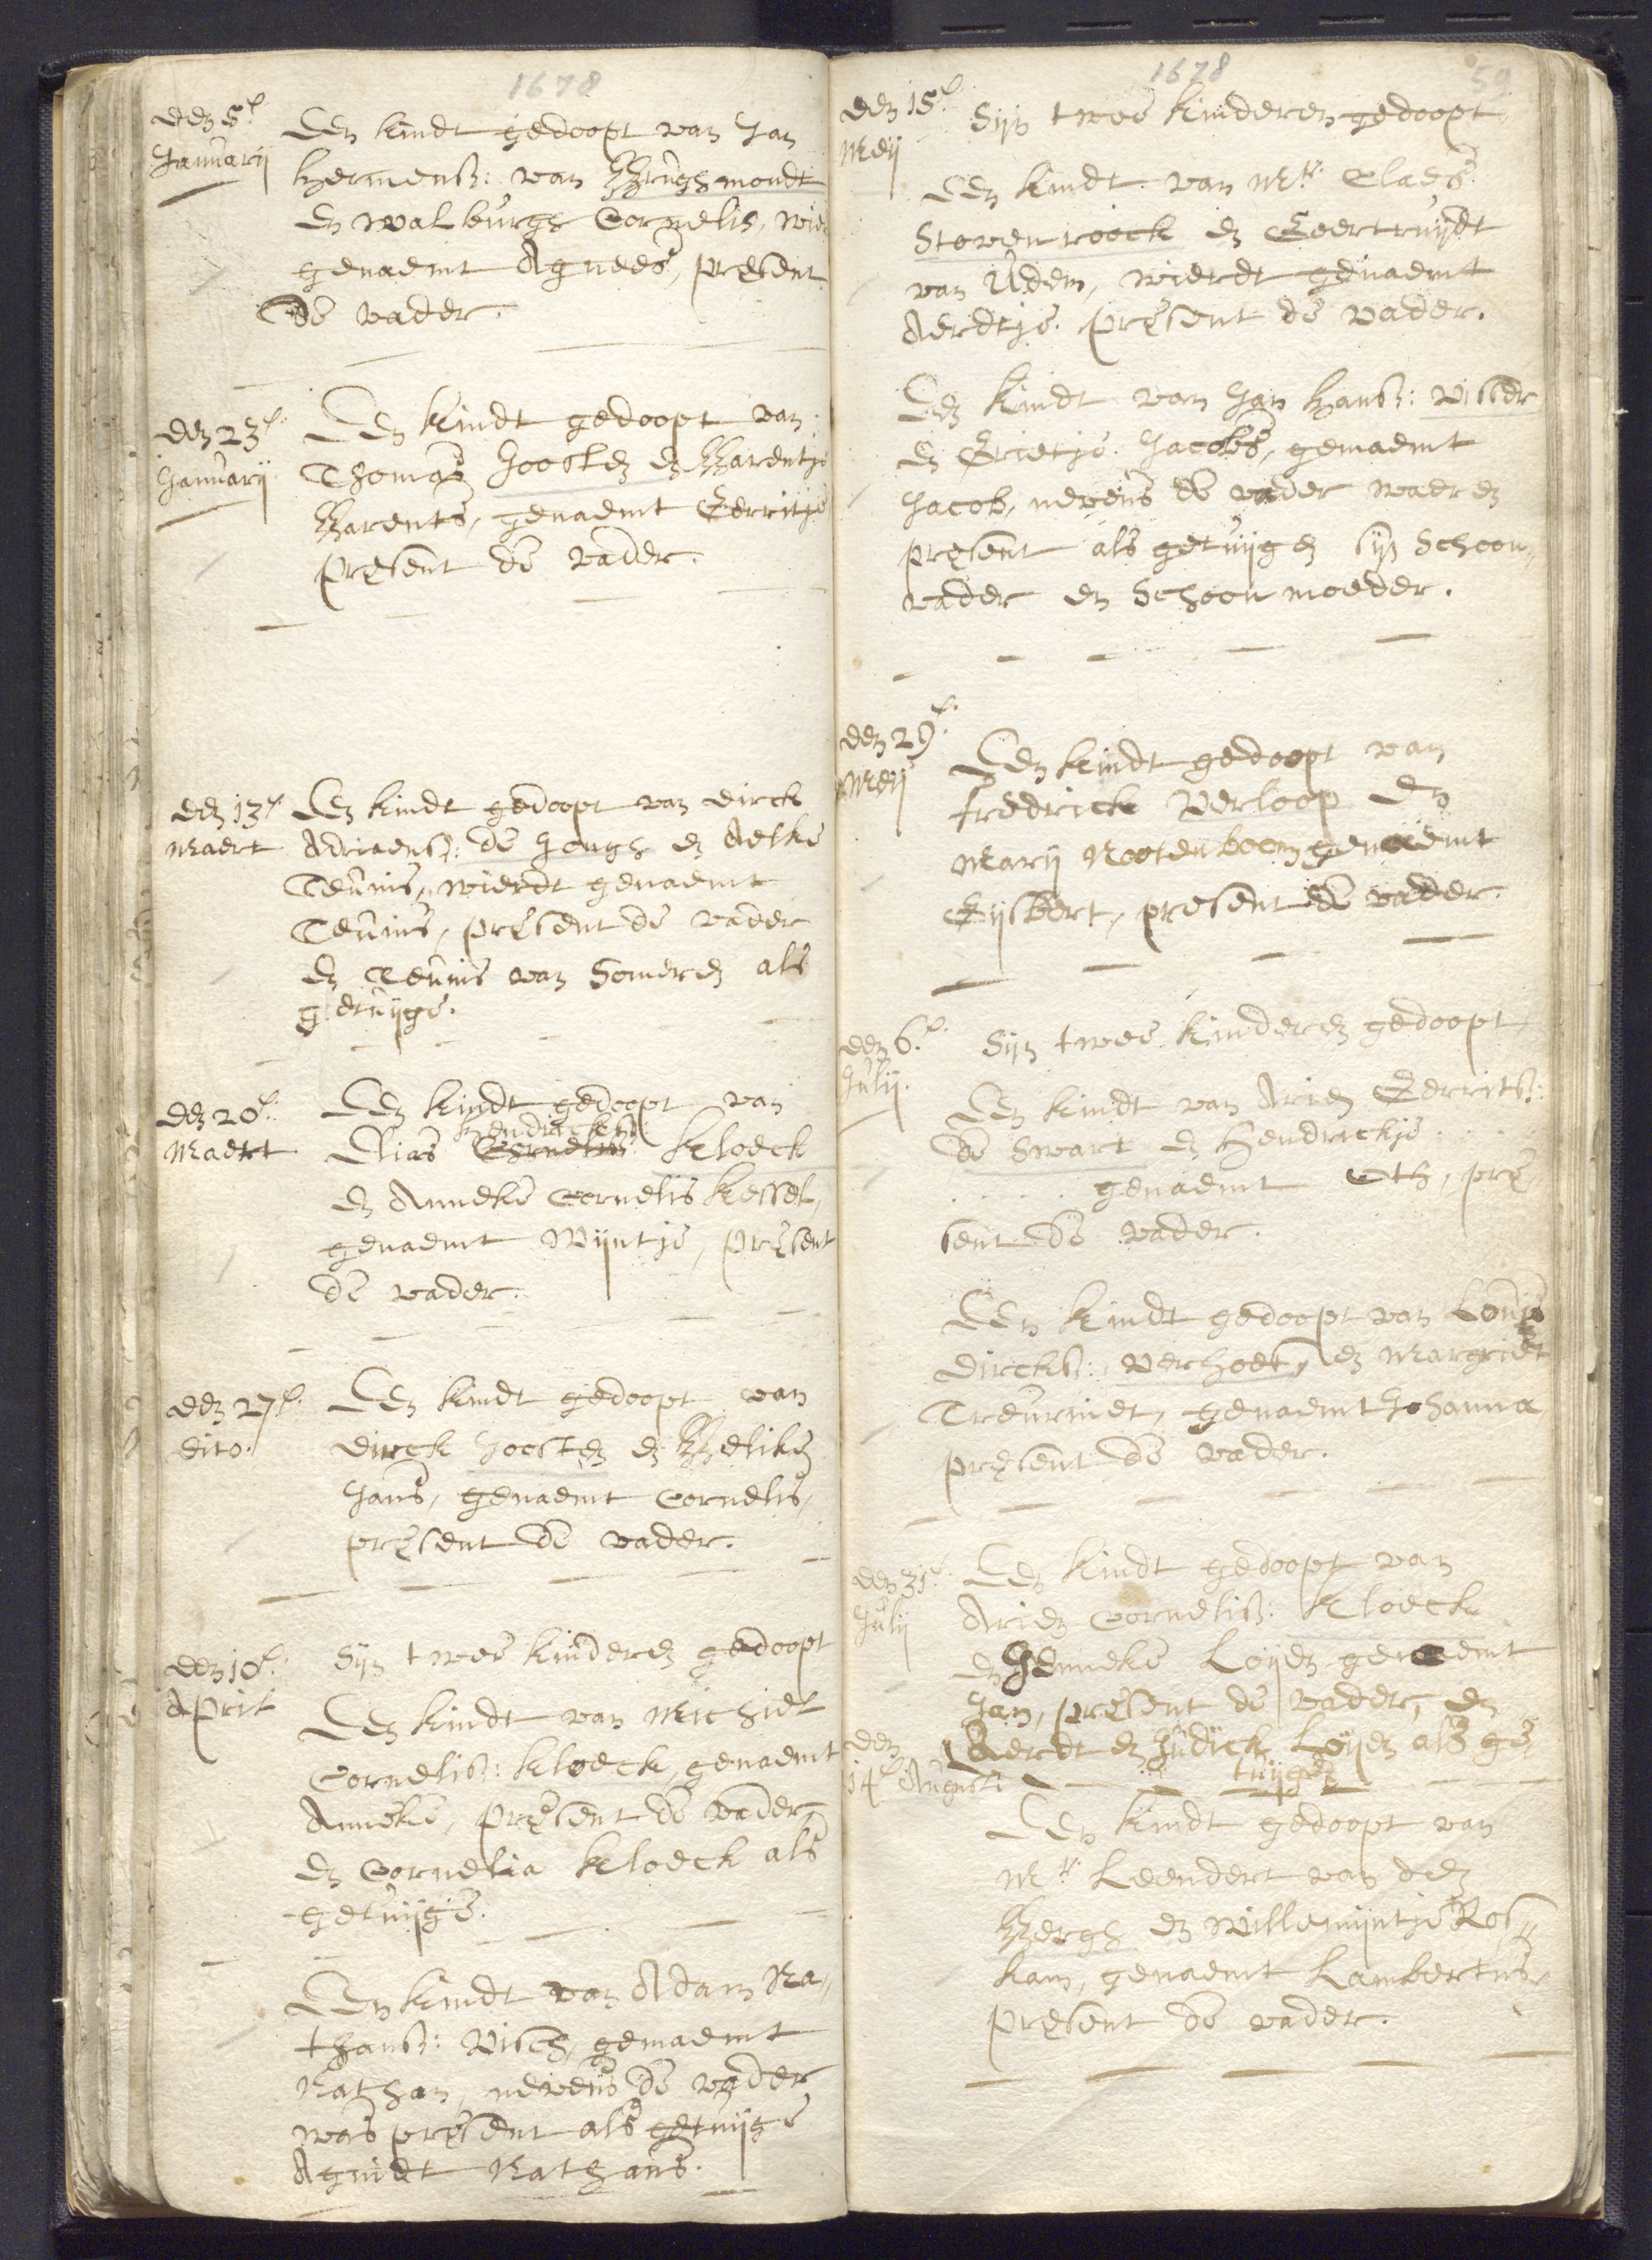 1678
den 5e.
Januarij
Een kindt gedoopt van Jan
Hermensz: van Brughmondt
en Walburgh Cornelis, wier
genaemt Agnees, present
De vader.
den 23e.
Januarij
Een kindt gedoopt van
Thomas Joosten en Barentje
Barents, genaemt Gerritje
present de vader.
den 13e
Maert
Een kindt gedoopt van Dirck
Adriaensz: de Jongh en Aelke
Teunis, wierdt genaemt
Teunis, present de vader
en Teunis van Someren als
getuijge.
den 20e.
Maert
Een kindt gedoopt van
Hendricksz:
Elias Cornelisz: Kloeck
en Anneke Cornelis Kessel,
genaemt Wijntje, present
de vader.
den 27e.
dito.
Een kindt gedoopt van
Dirck Joosten en Beliken
Jans, genaemt Cornelis,
present de vader.
den 10e.
April
Sijn twee kinderen gedoopt
Een kindt van Michiel
Cornelisz: Kloeck, genaemt
Anneke, present de vader,
en Cornelia Kloeck als
getuijge.
Een kindt van Adam Na,,
thansz: Visch, genaemt
Nathan, nevens de vader
was present als getuijge
Agnidt Nathans.
1678
59
den 15e.
Meij
Sijn twee kinderen gedoopt
Een kindt van Mr. Claes
Stovenroock en Geertruijdt
van Uden, wierdt genaemt
Aerdtje. present de vader.
Een kindt van Jan Hansz: Visser
en Grietje Jacobs, genaemt
Jacob, nevens de vader waeren
present als getuijgen sijn Schoon,,
vader en Schoon moeder.
den 29e.
Meij
Een kindt gedoopt van
Fredrick Verloop en
Marij Nootenboom genaemt
Gijsbert, present de vader.
den 6e.
Julij.
Sijn twee kinderen gedoopt,
Een kindt van Arien Gerritsz:
de Swart en Hendrickje . . .
. . . . genaemt Oth, pre,,
sent de vader.
Een kindt gedoopt van Louis
Dircksz: Verhoet, en Margriet
Treurniet, genaemt Johanna
present de vader.
den 31e.
Julij
Een kindt gedoopt van
Arien Cornelisz: Kloeck
en Jenneke Loijen genaemt
Jan, present de vader, en
Aerdt en Judick Loijen als ge,,
tuijgen
den
14e Augusti
Een kindt gedoopt van
Mr. Leendert van den
Bergh en Willemijntje Ros,,
kam, genaemt Lambertus,
present de vader.